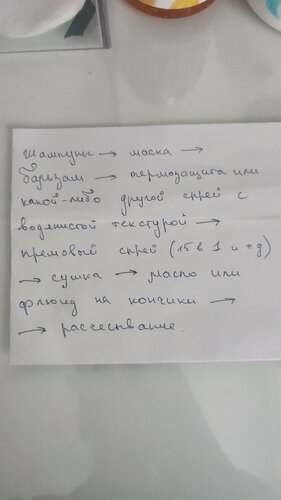 шампунь → маска →
бальзам → термозащита или
какой-либо другой спрей с
водянистой текстурой →
кремовый спрей (15 в 1 и тд)
→ сушка → масло или
флюид на кончики →
→ расчесывание.